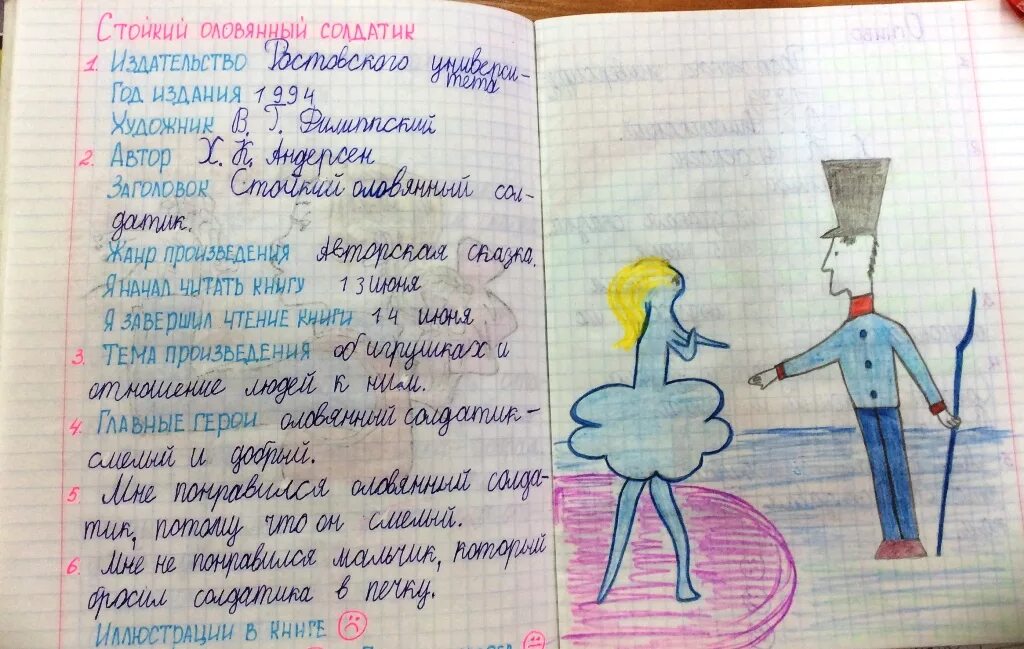 Стойкий оловянный солдатик
1. Издательство Ростовского универси-
тета
Год издания 1994
Художник В. Г. Филиппский
2. Автор Х. К. Андерсен
Заголовок Стойкий оловянный сол-
датик.
Жанр произведения Авторская сказка.
Я начал читать книгу 13 июня
Я завершил чтение книги 14 июня
3. Тема произведения об игрушках и
отношение людей к ним.
4. Главные герои оловянный солдатик-
смелый и добрый.
5. Мне понравился оловянный солда-
тик, потому что он смелый.
6. Мне не понравился мальчик, который
бросил солдатика в печку.
Иллюстрации в книге